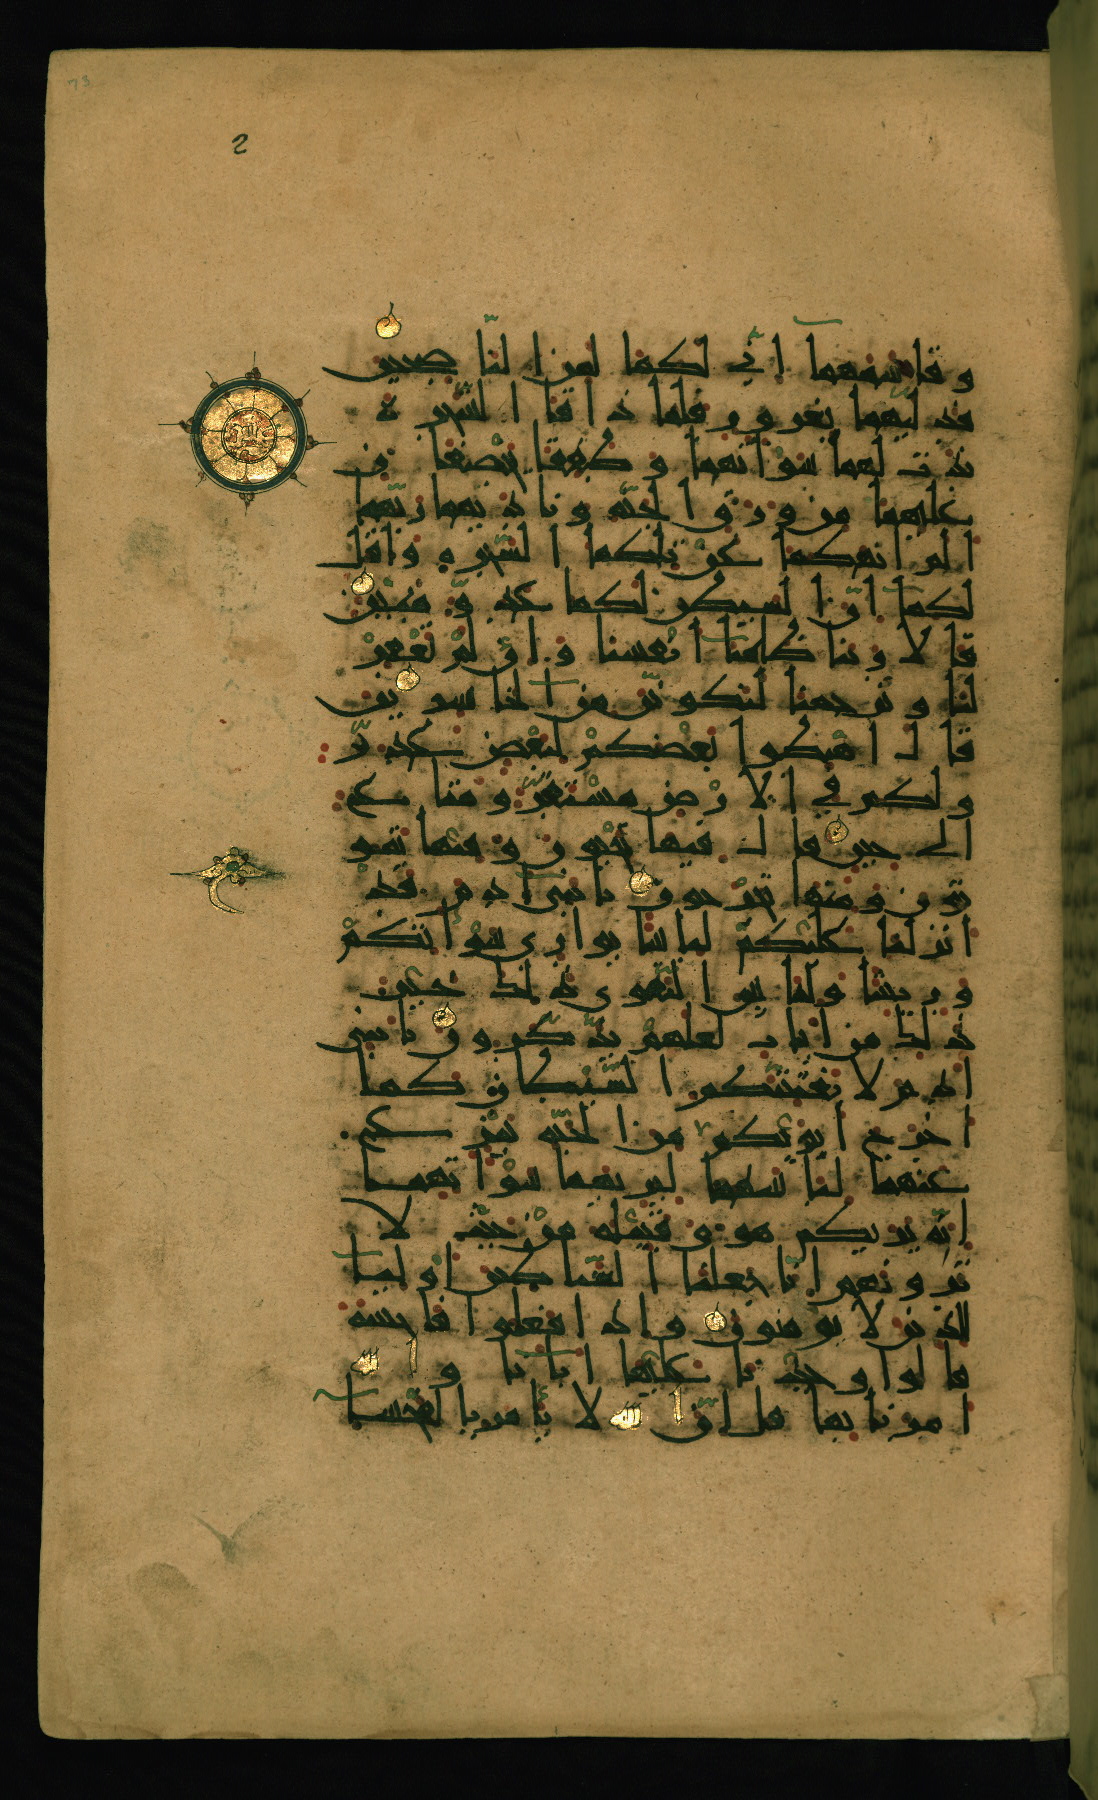 73
2
وقاسمهما انى لكما لمن النا صحين
فدليهما بغرور فلما ذاقا الشجرة
بدت لهما سواتهما وطفقا يخصفان
عليهما من ورق الجنة وناديهما ربهما
الم انهكما عن تلكما الشجرة واقل
لكما ان الشيطن لكما عدو مبين
قالا ربنا ظلمنا انفسنا وان لم تغفر
لنا وترحمنا لنكونن من الخاسرين
قال اهبطوا بعضكم لبعض عدو
ولكم في الارض مستقر ومتاع
الى حين قال فيها تحيون وفيها تمو
تون ومنها تخرجون يا بنى ادم قد
انزلنا عليكم لباسا يوارى سواتكم
وريشا ولباس التقوى ذلك خير
ذلك من ايات لعلهم يذكرون يا بنى
ادم لا يفتننكم الشيطان كما
اخرج ابويكم من الجنة ينزع
عنهما لباسهما ليريهما سواتهما
انه يريكم هو وقبيله من حيث لا
ترونهم انا جعلنا الشياطين اوليا
للذين لا يومنون واذا فعلوا فاحشة
قالوا وجدنا عليها ابانا والله
امرنا بها قل ان الله لا يامر بالفحشا